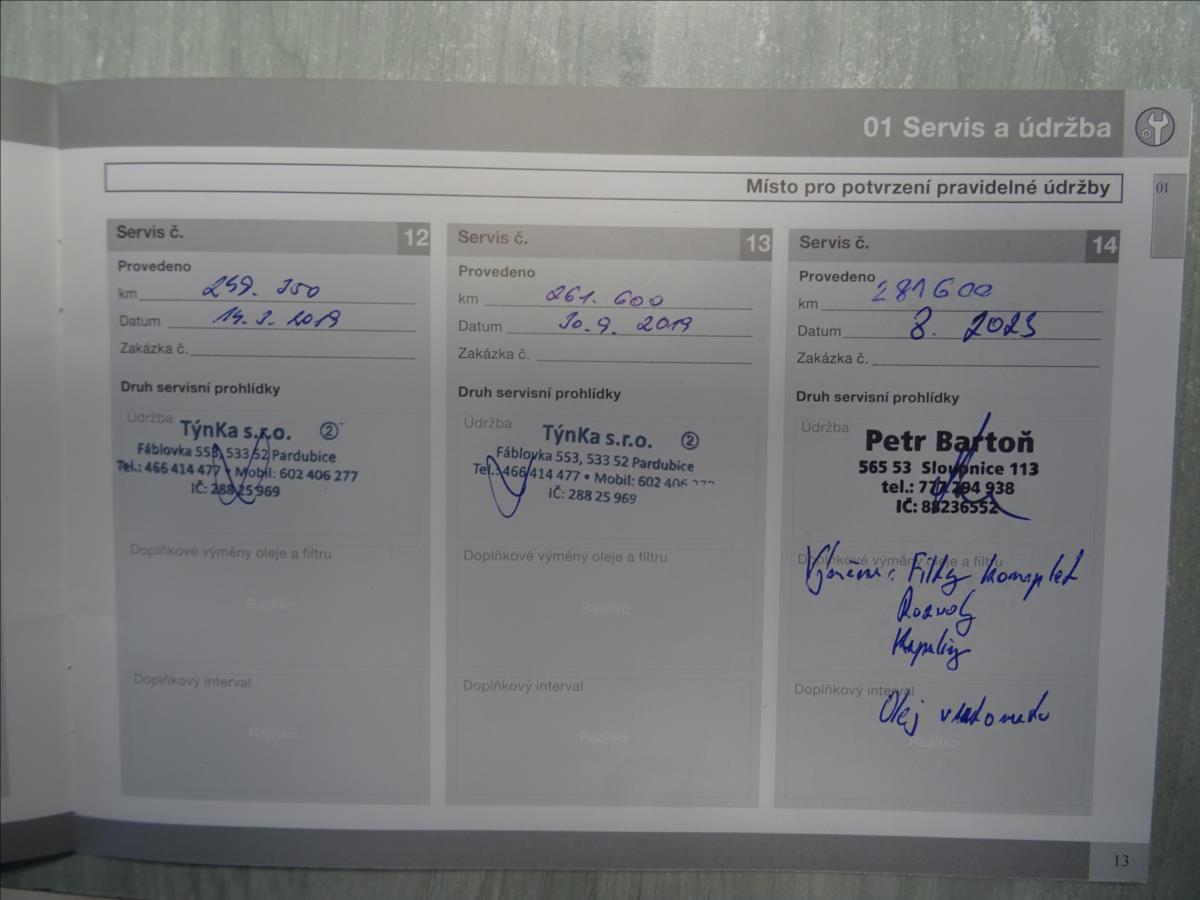 01 Servis a údržba
Místo pro potvrzení pravidelné údržby
01
Servis č. 12
Provedeno
km 249. 350
Datum 14. 3. 2019
Zakázka č.
Druh servisní prohlídky
Údržba
TýnKa s.r.o. 2
Fáblovka 553, 533 52 Pardubice
Tel.: 466 414 477 • Mobil: 602 406 277
IČ: 288 25 969
Doplňkové výměny oleje a filtru
Razítko
Doplňkový interval
Razítko
Servis č. 13
Provedeno
km 261. 600
Datum 30. 9. 2019
Zakázka č.
Druh servisní prohlídky
Údržba
TýnKa s.r.o. 2
Fáblovka 553, 533 52 Pardubice
Tel.: 466 414 477 • Mobil: 602 406 277
IČ: 288 25 969
Doplňkové výměny oleje a filtru
Razítko
Doplňkový interval
Razítko
Servis č. 14
Provedeno
km 281600
Datum 8. 2023
Zakázka č.
Druh servisní prohlídky
Údržba
Petr Bartoň
565 53 Sloupnice 113
tel.: 938
IČ: 88236552
Doplňkové výměny oleje a filtru
Filtry komplet
Rozvody
Kapaliny
Doplňkový interval
Olej v automatu
Razítko
13